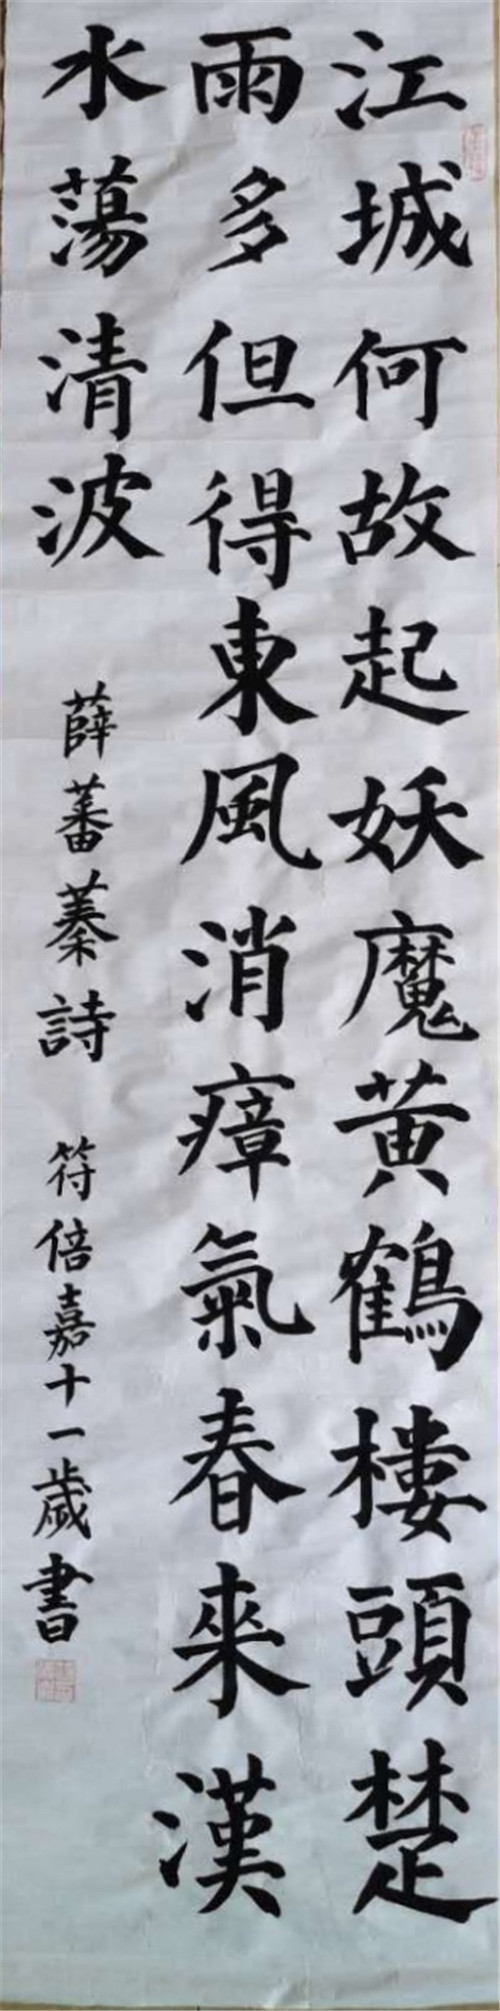 江城何故起妖魔黄鶴樓頭楚
雨多但得東風消瘴氣春來漢
水蕩清波
薛蕃蓁詩 符倍嘉十一歲書